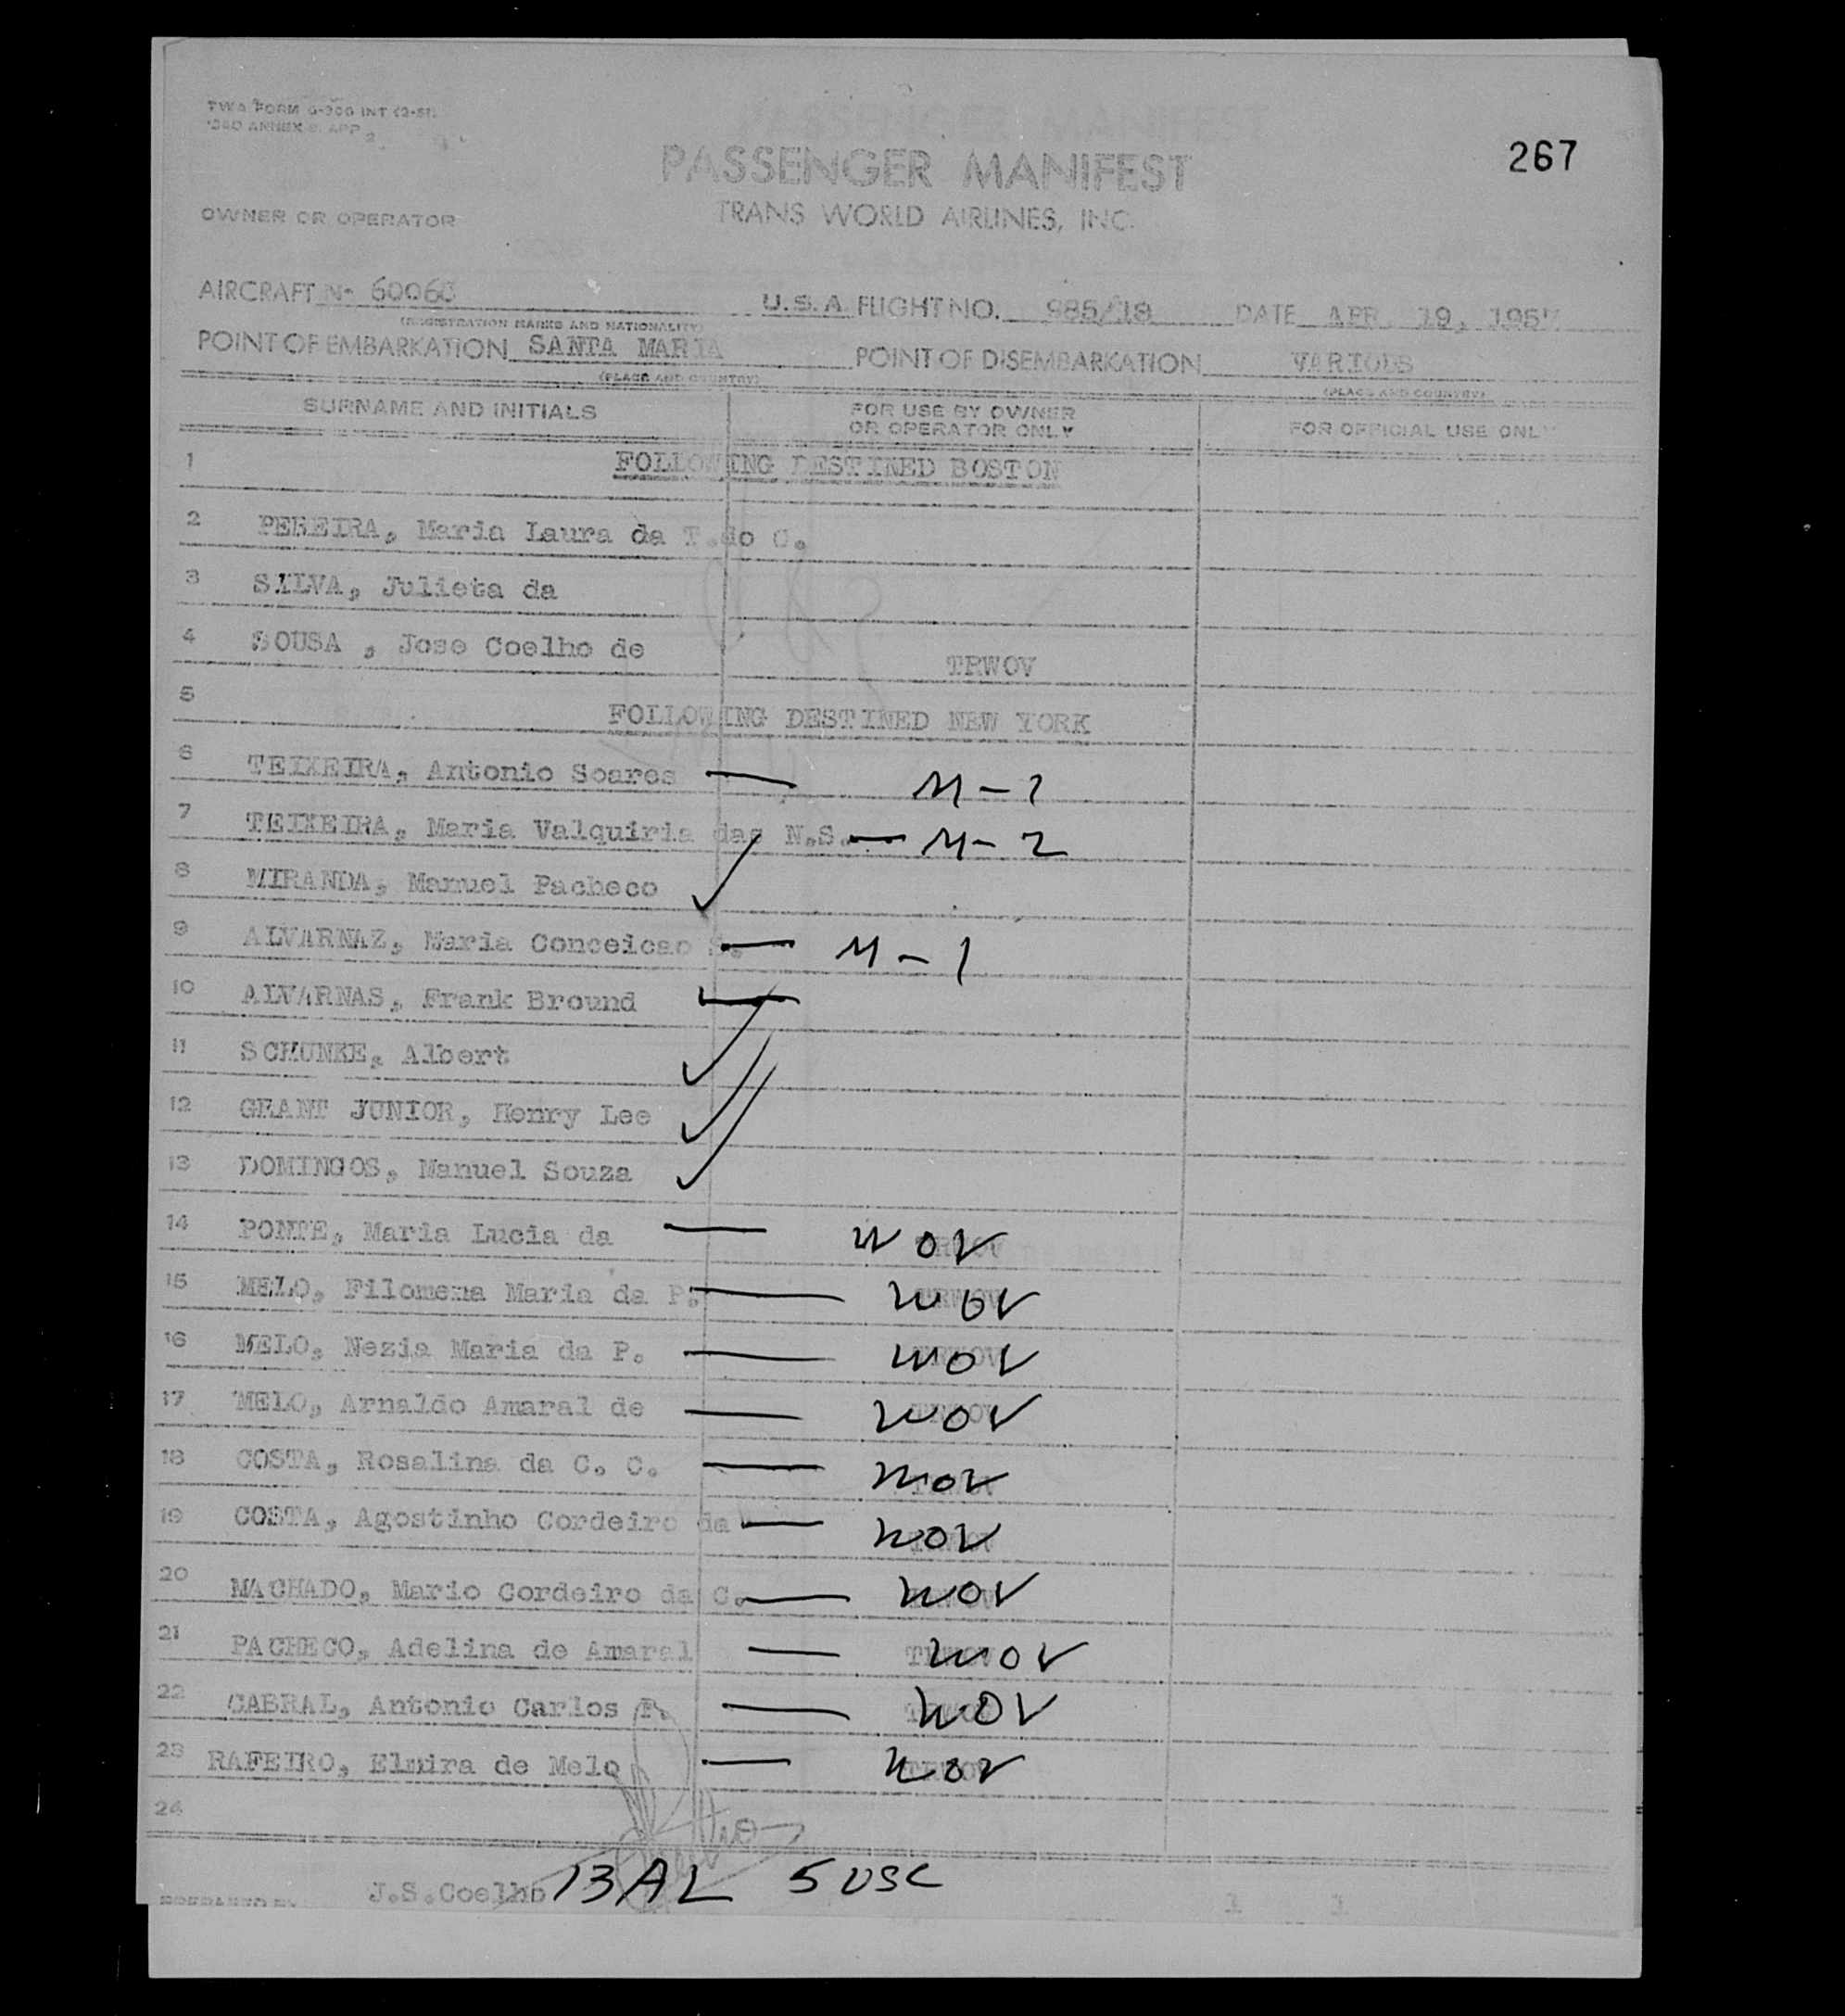 TWA FORM G-306 INT (2-51)
ICAO ANNEX 9. APP 2
267
PASSENGER MANIFEST
OWNER OR OPERATOR TRANS WORLD AIRLINES, INC.
AIRCRAFT No 60060 U.S.A. FLIGHT NO. 985/18 DATE APR. 19, 195
(REGISTRATION MARKS AND NATIONALITY)
POINT OF EMBARKATION SANTA MARIA POINT OF DISEMBARKATION VARIOUS
(PLACE AND COUNTRY) (PLACE AND COUNTRY)
SURNAME AND INITIALS FOR USE BY OWNER OR OPERATOR ONLY FOR OFFICIAL USE ONLY
1 FOLLOWING DESTINED BOSTON
2 PEREIRA, Maria Laura da T.do C.
3 SILVA, Julieta da
4 SOUSA , Jose Coelho de TRWOV
5 FOLLOWING DESTINED NEW YORK
6 TEIXEIRA, Antonio Soares — M-1
7 TEIXEIRA, Maria Valquiria das N.S. — M-2
8 MIRANDA, Manuel Pacheco ✓
9 ALVARNAZ, Maria Conceicao S. — M-1
10 ALVARNAS, Frank Bround
11 SCHUNKE, Albert ✓
12 GRANT JUNIOR, Henry Lee ✓
13 DOMINGOS, Manuel Souza ✓
14 PONTE, Maria Lucia da — TRWOV WOV
15 MELO, Filomena Maria da P. — TRWOV WOV
16 MELO, Nezia Maria da P. — TRWOV WOV
17 MELO, Arnaldo Amaral de — TRWOV WOV
18 COSTA, Rosalina da C. C. — TRWOV WOV
19 COSTA, Agostinho Cordeiro da — TRWOV WOV
20 MACHADO, Mario Cordeiro da C. — TRWOV WOV
21 PACHECO, Adelina de Amaral — TRWOV WOV
22 CABRAL, Antonio Carlos P. — TRWOV WOV
23 RAFEIRO, Elmira de Melo — TRWOV WOV
24
PREPARED BY J.S.Coelho 13 AL 5 USC 1 1